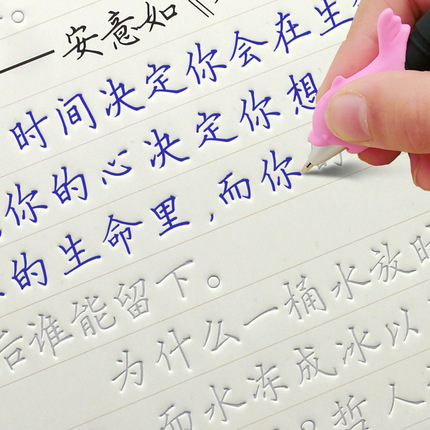 ——安意如《
时间决定你会在生
你的心决定你想
的生命里,而你
后谁能留下。
为什么一桶水放时
而水冻成冰以
哲人